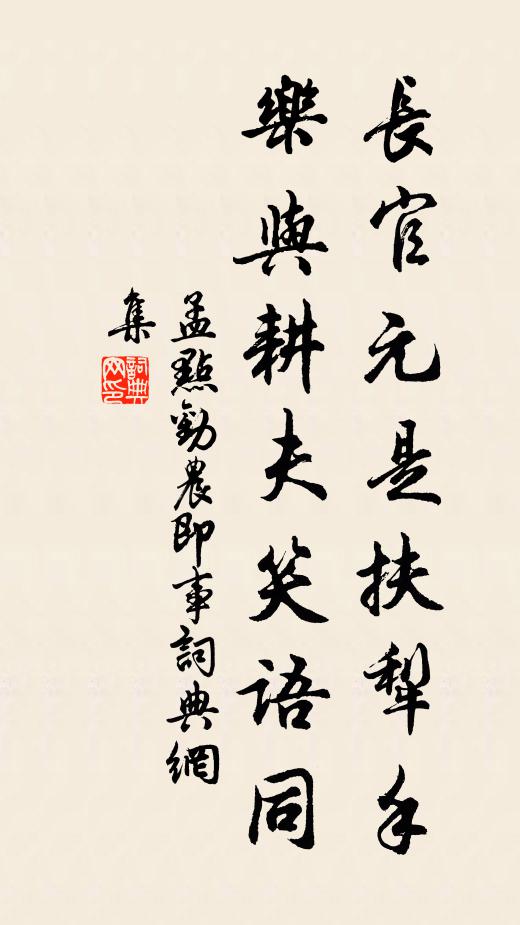 長官元是扶犁手
樂與耕夫笑語同
孟點勸農即事詞典網
集
詞典
网印